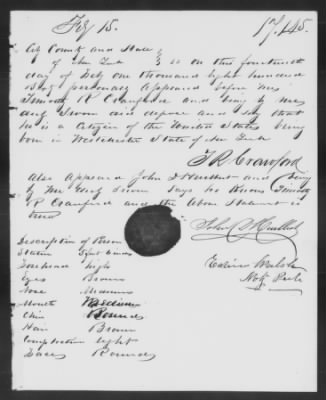 Feb 15. 17.145.
City County and State }
of New York } ss on the fourteenth
day of Feby one thousand eight hundred
personally appeared before me
Timothy R Crawford and being by me
duly Sworn and depose and say that
he is a Citizen of the United States being
born in Westchester State of New York
T. R. Crawford
Also Appeared John S Hulbut and being
by me duly Sworn Says he Knows Timothy
R Crawford and the Above Statement is
true
John S Hulbut
Edwin
Noty Public
Description of Person
Stature 5 feet
Forehead high
Eyes Brown
Nose Medium
Mouth Medium
Chin Round
Hair Brown
Complection light
Face Round